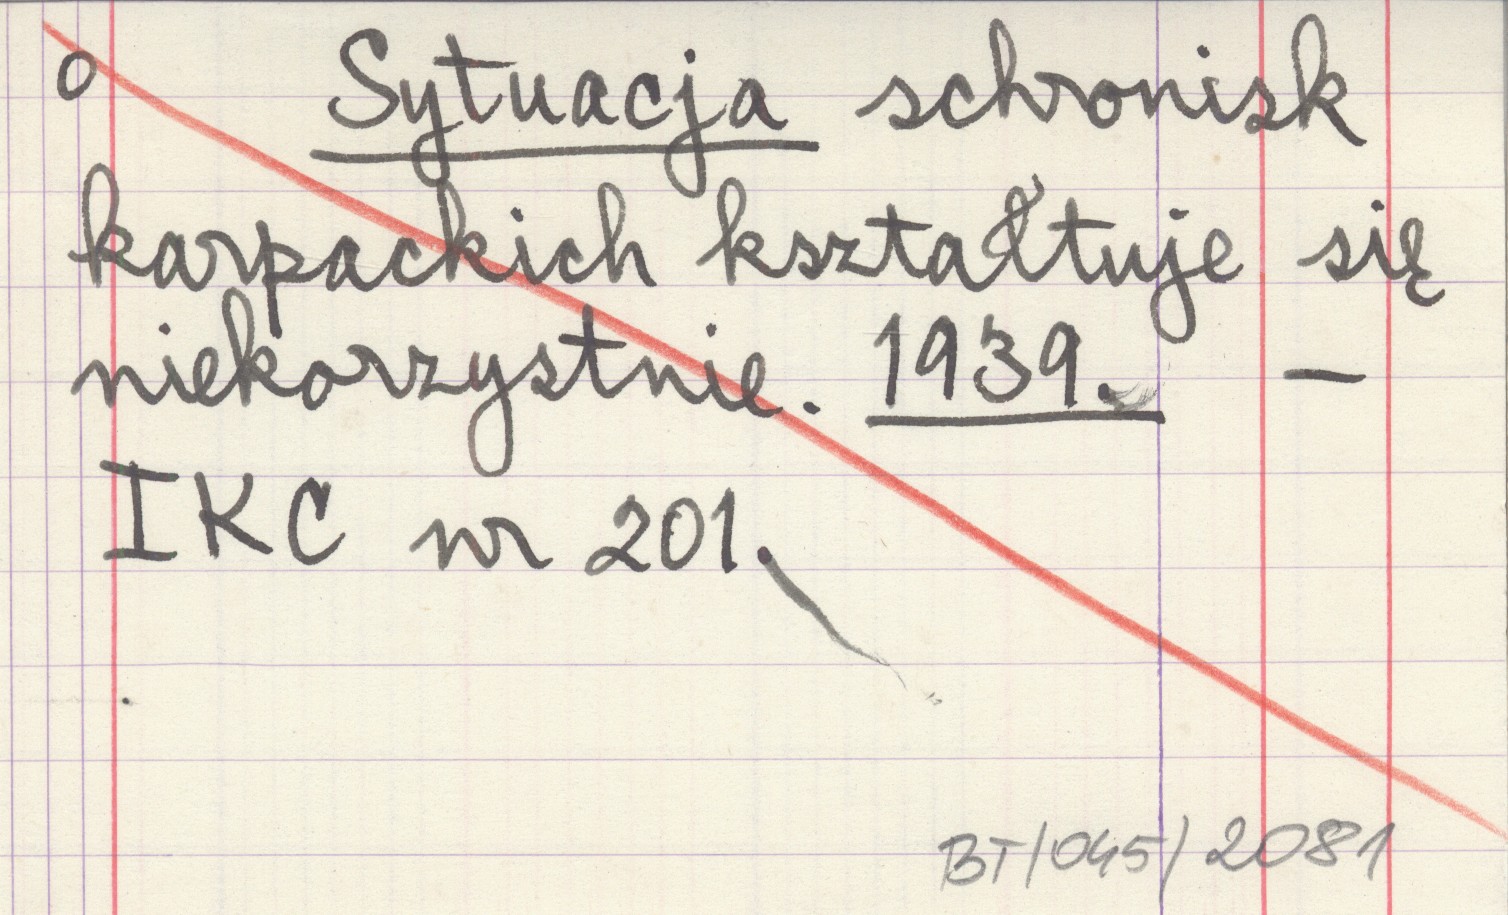 o Sytuacja schronisk
karpackich kształtuje się
niekorzystnie. 1939. —
IKC nr 201.
BT/045/2081